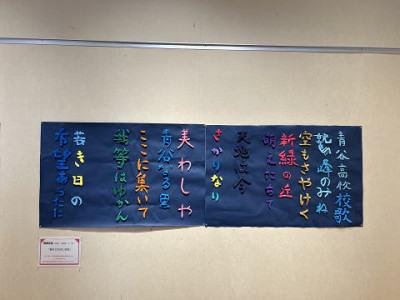 青谷高校校歌
鷲の峰のみね
空もさやけく
新緑の丘
萌えたちて
天地は今
さかりなり
美わしや
青谷なる里
ここに集いて
我等はゆかん
若き日の
希望あらたに